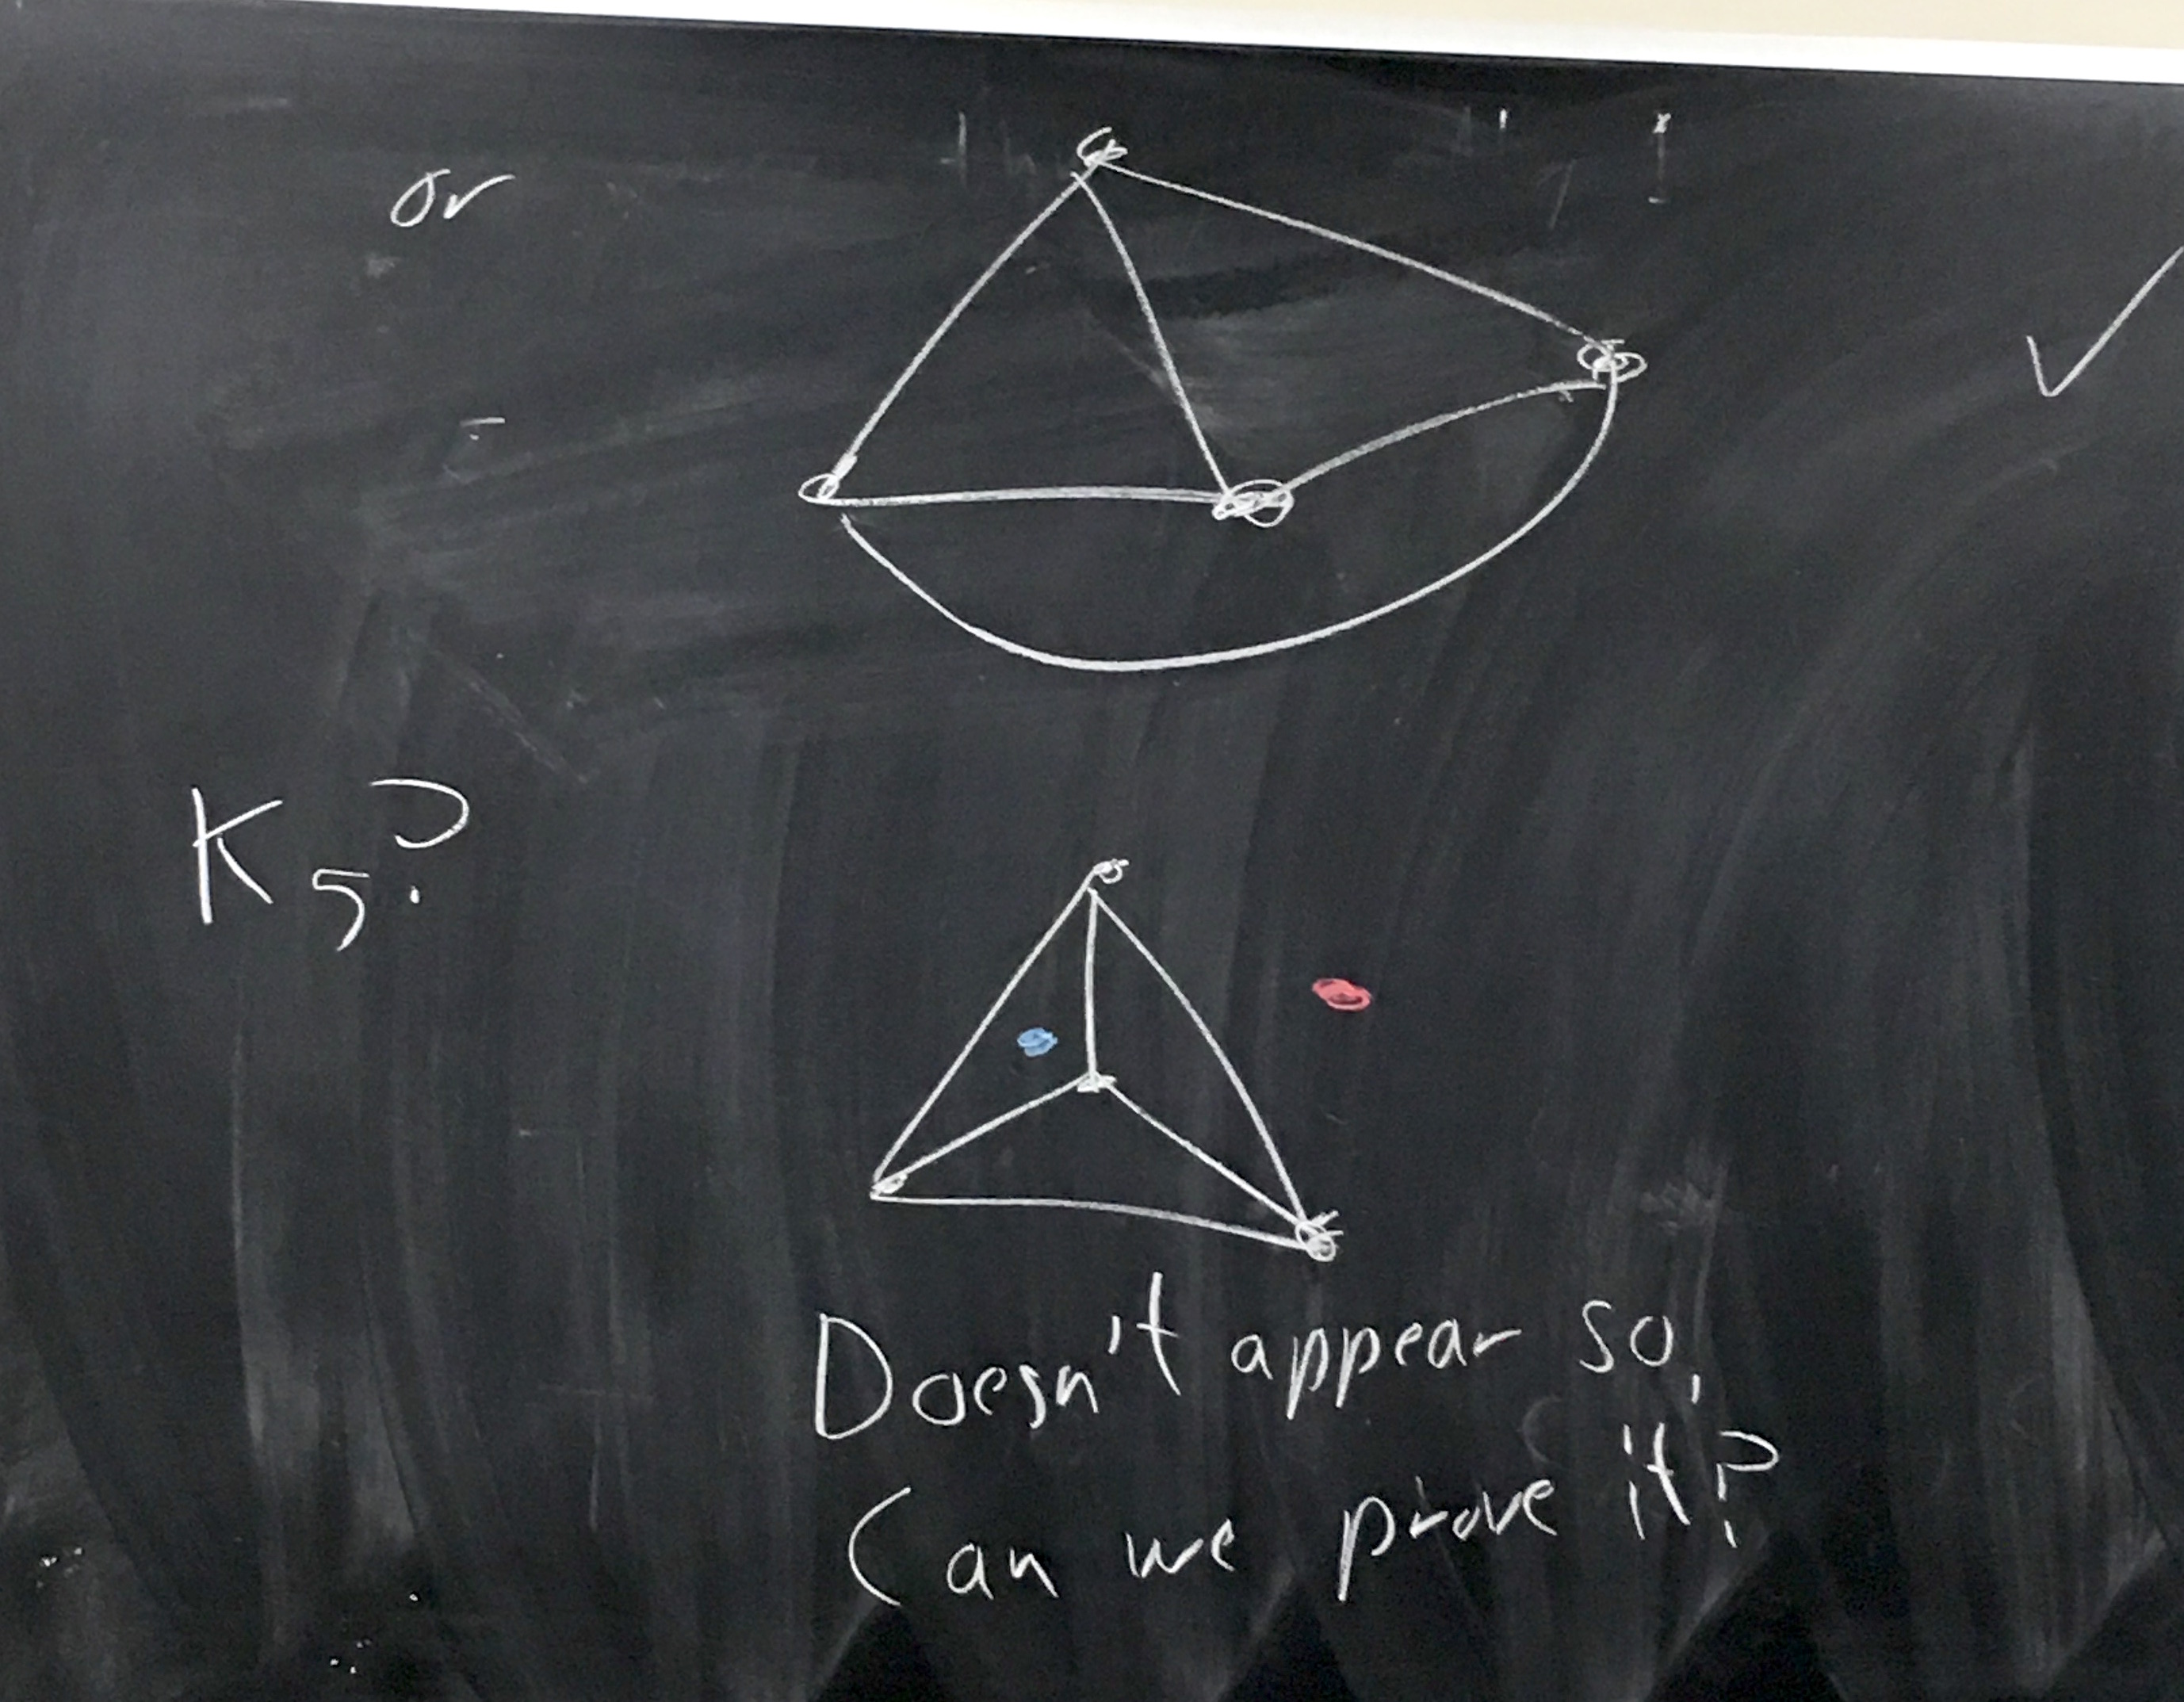 or
K5?
Doesn't appear so,
Can we prove it?